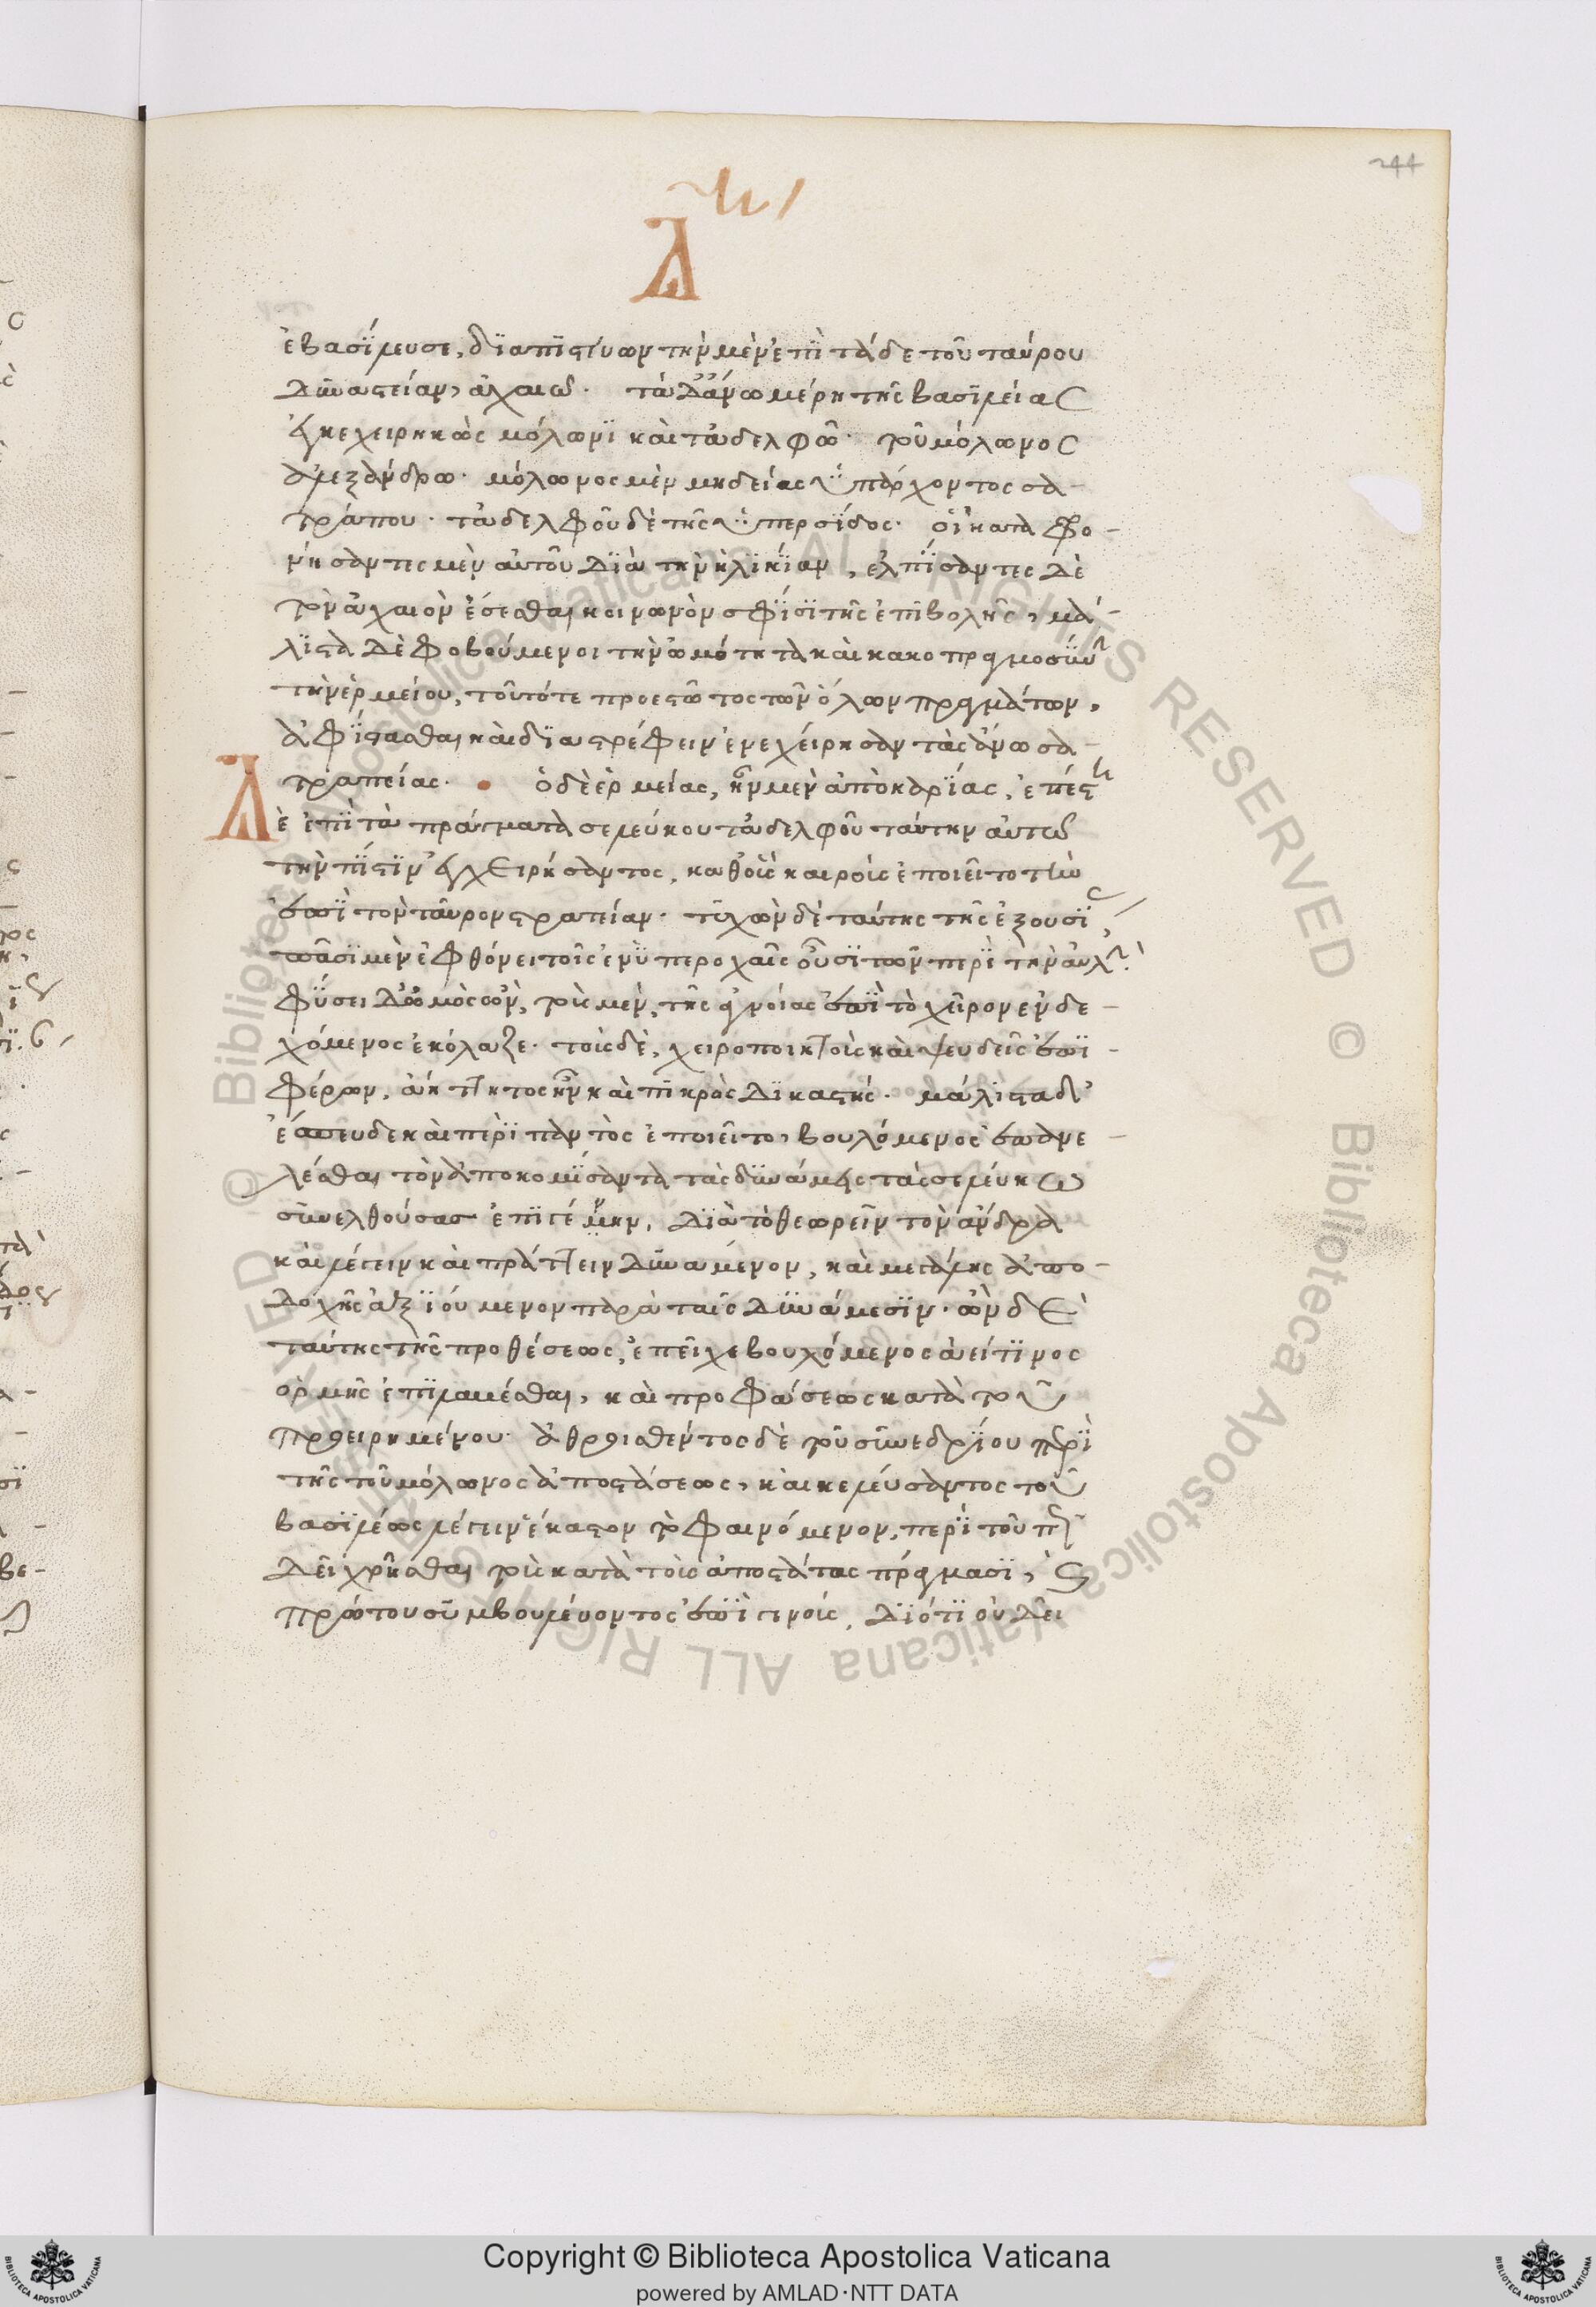 244
ἐβασίλευσε, διαπιστεύων τὴν μὲν ἐπὶ τάδε τοῦ ταύρου
δυναστείαν, ἀχαιῶ. τὰ δ' ἄνω μέρη τῆς βασιλείας
ἐγκεχειρηκὼς μόλωνι καὶ τἀδελφῶ τοῦ μόλωνος
ἀλεξάνδρω. μόλωνος μὲν μηδείας ὑπάρχοντος σα-
τράπου. τἀδελφοῦ δὲ τῆς περσίδος. οἳ κατα φρο-
νήσαντες μὲν αὐτοῦ διὰ τὴν ἡλικίαν, ἐλπίσαντες δὲ
τὸν ἀχαιὸν ἔσεσθαι κοινωνὸν σφίσι τῆς ἐπιβολῆς, μά-
λιστα δὲ φοβούμενοι τὴν ὠμότητα καὶ κακοπραγμοσύνην
τὴν ἑρμείου, τοῦ τότε προεστῶτος τῶν ὅλων πραγμάτων,
ἀφίστασθαι καὶ διαστρέφειν ἐνεχείρησαν τὰς ἄνω σα-
τραπείας. ὁ δὲ ἑρμείας, ἦν μὲν ἀπὸ καρίας, ἐπέστη
δὲ ἐπὶ τὰ πράγματα σελεύκου τἀδελφοῦ ταύτην αὐτῶ
τὴν πίστιν ἐγχειρήσαντος, καθ' οὓς καιροὺς ἐποιεῖτο τὴν
ἐπὶ τὸν ταῦρον στραπείαν. τυχὼν δὲ ταύτης τῆς ἐξουσίας,
πᾶσι μὲν ἐφθόνει τοῖς ἐν ὑπεροχαῖς οὖσι τῶν περὶ τὴν αὐλήν.
φύσει δὲ ὠμὸς ὢν, τοὺς μὲν, τῆς ἀγνοίας ἐπὶ τὸ χεῖρον ἐνδε-
χόμενος ἐκόλαζε. τοῖς δὲ, χειροποιήτους καὶ ψευδεῖς ἐπι-
φέρων, ἀπαραίτητος ἦν καὶ πικρὸς δικαστής. μάλιστα δ'
ἔσπευδε καὶ περὶ παντὸς ἐποιεῖτο, βουλόμενος ἐπανε-
λέσθαι τὸν ἀποκομίσαντα τὰς δυνάμεις τὰς σελεύκω
συνελθούσας ἐπιγένην, διὰ τὸ θεωρεῖν τὸν ἄνδρα
καὶ λέγειν καὶ πράττειν δυνάμενον, καὶ μεγάλης ἀπο-
δοχῆς ἀξιούμενον παρὰ ταῖς δυνάμεσιν. ὢν δὲ
ταύτης τῆς προθέσεως, ἐπεῖχε βουλόμενος ἀεί τινος
ὁρμῆς ἐπιλαβέσθαι, καὶ προφάσεως κατὰ τοῦ
προειρημένου. ἀθροισθέντος δὲ τοῦ συνεδρίου περὶ
τῆς τοῦ μόλωνος ἀποστάσεως, καὶ κελεύσαντος τοῦ
βασιλέως λέγειν ἕκαστον τὸ φαινόμενον, περὶ τοῦ πῶς
δεῖ χρῆσθαι τοῖς κατὰ τοὺς ἀποστάτας πράγμασι, καὶ
πρώτου συμβουλεύοντος ἐπιγένους, διότι οὐ δεῖ
Copyright © Biblioteca Apostolica Vaticana
powered by AMLAD·NTT DATA